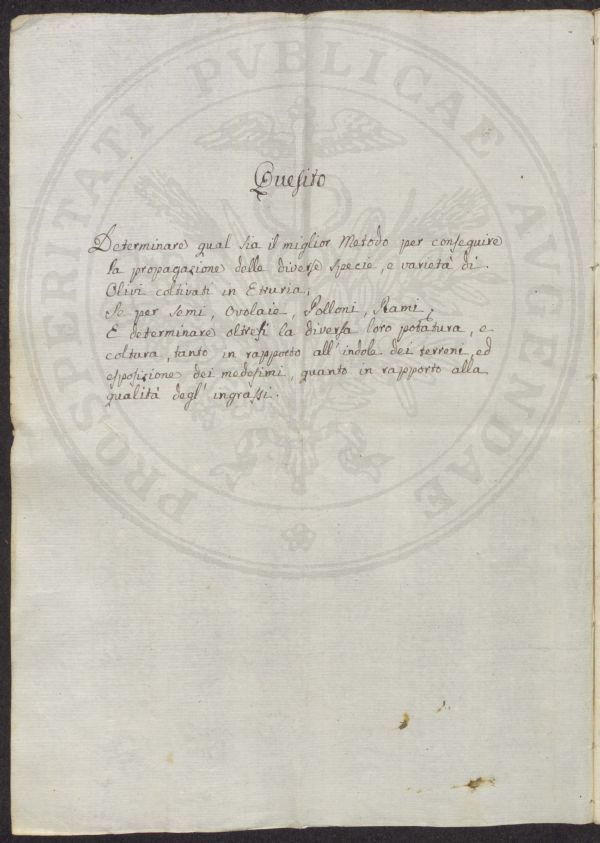 Quesito
Determinare qual sia il miglior Metodo per conseguire
la propagazione delle diverse specie, e varietà di
Olivi coltivati in Etruria;
Se per semi, Ovolaie, Polloni, Rami;
E determinare oltresì la diversa loro potatura, e
coltura, tanto in rapporto all' indole dei terreni, ed
esposizione dei medesimi, quanto in rapporto alla
qualità degl' ingrassi.
PROSPERITATI PVBLICAE AVGENDAE